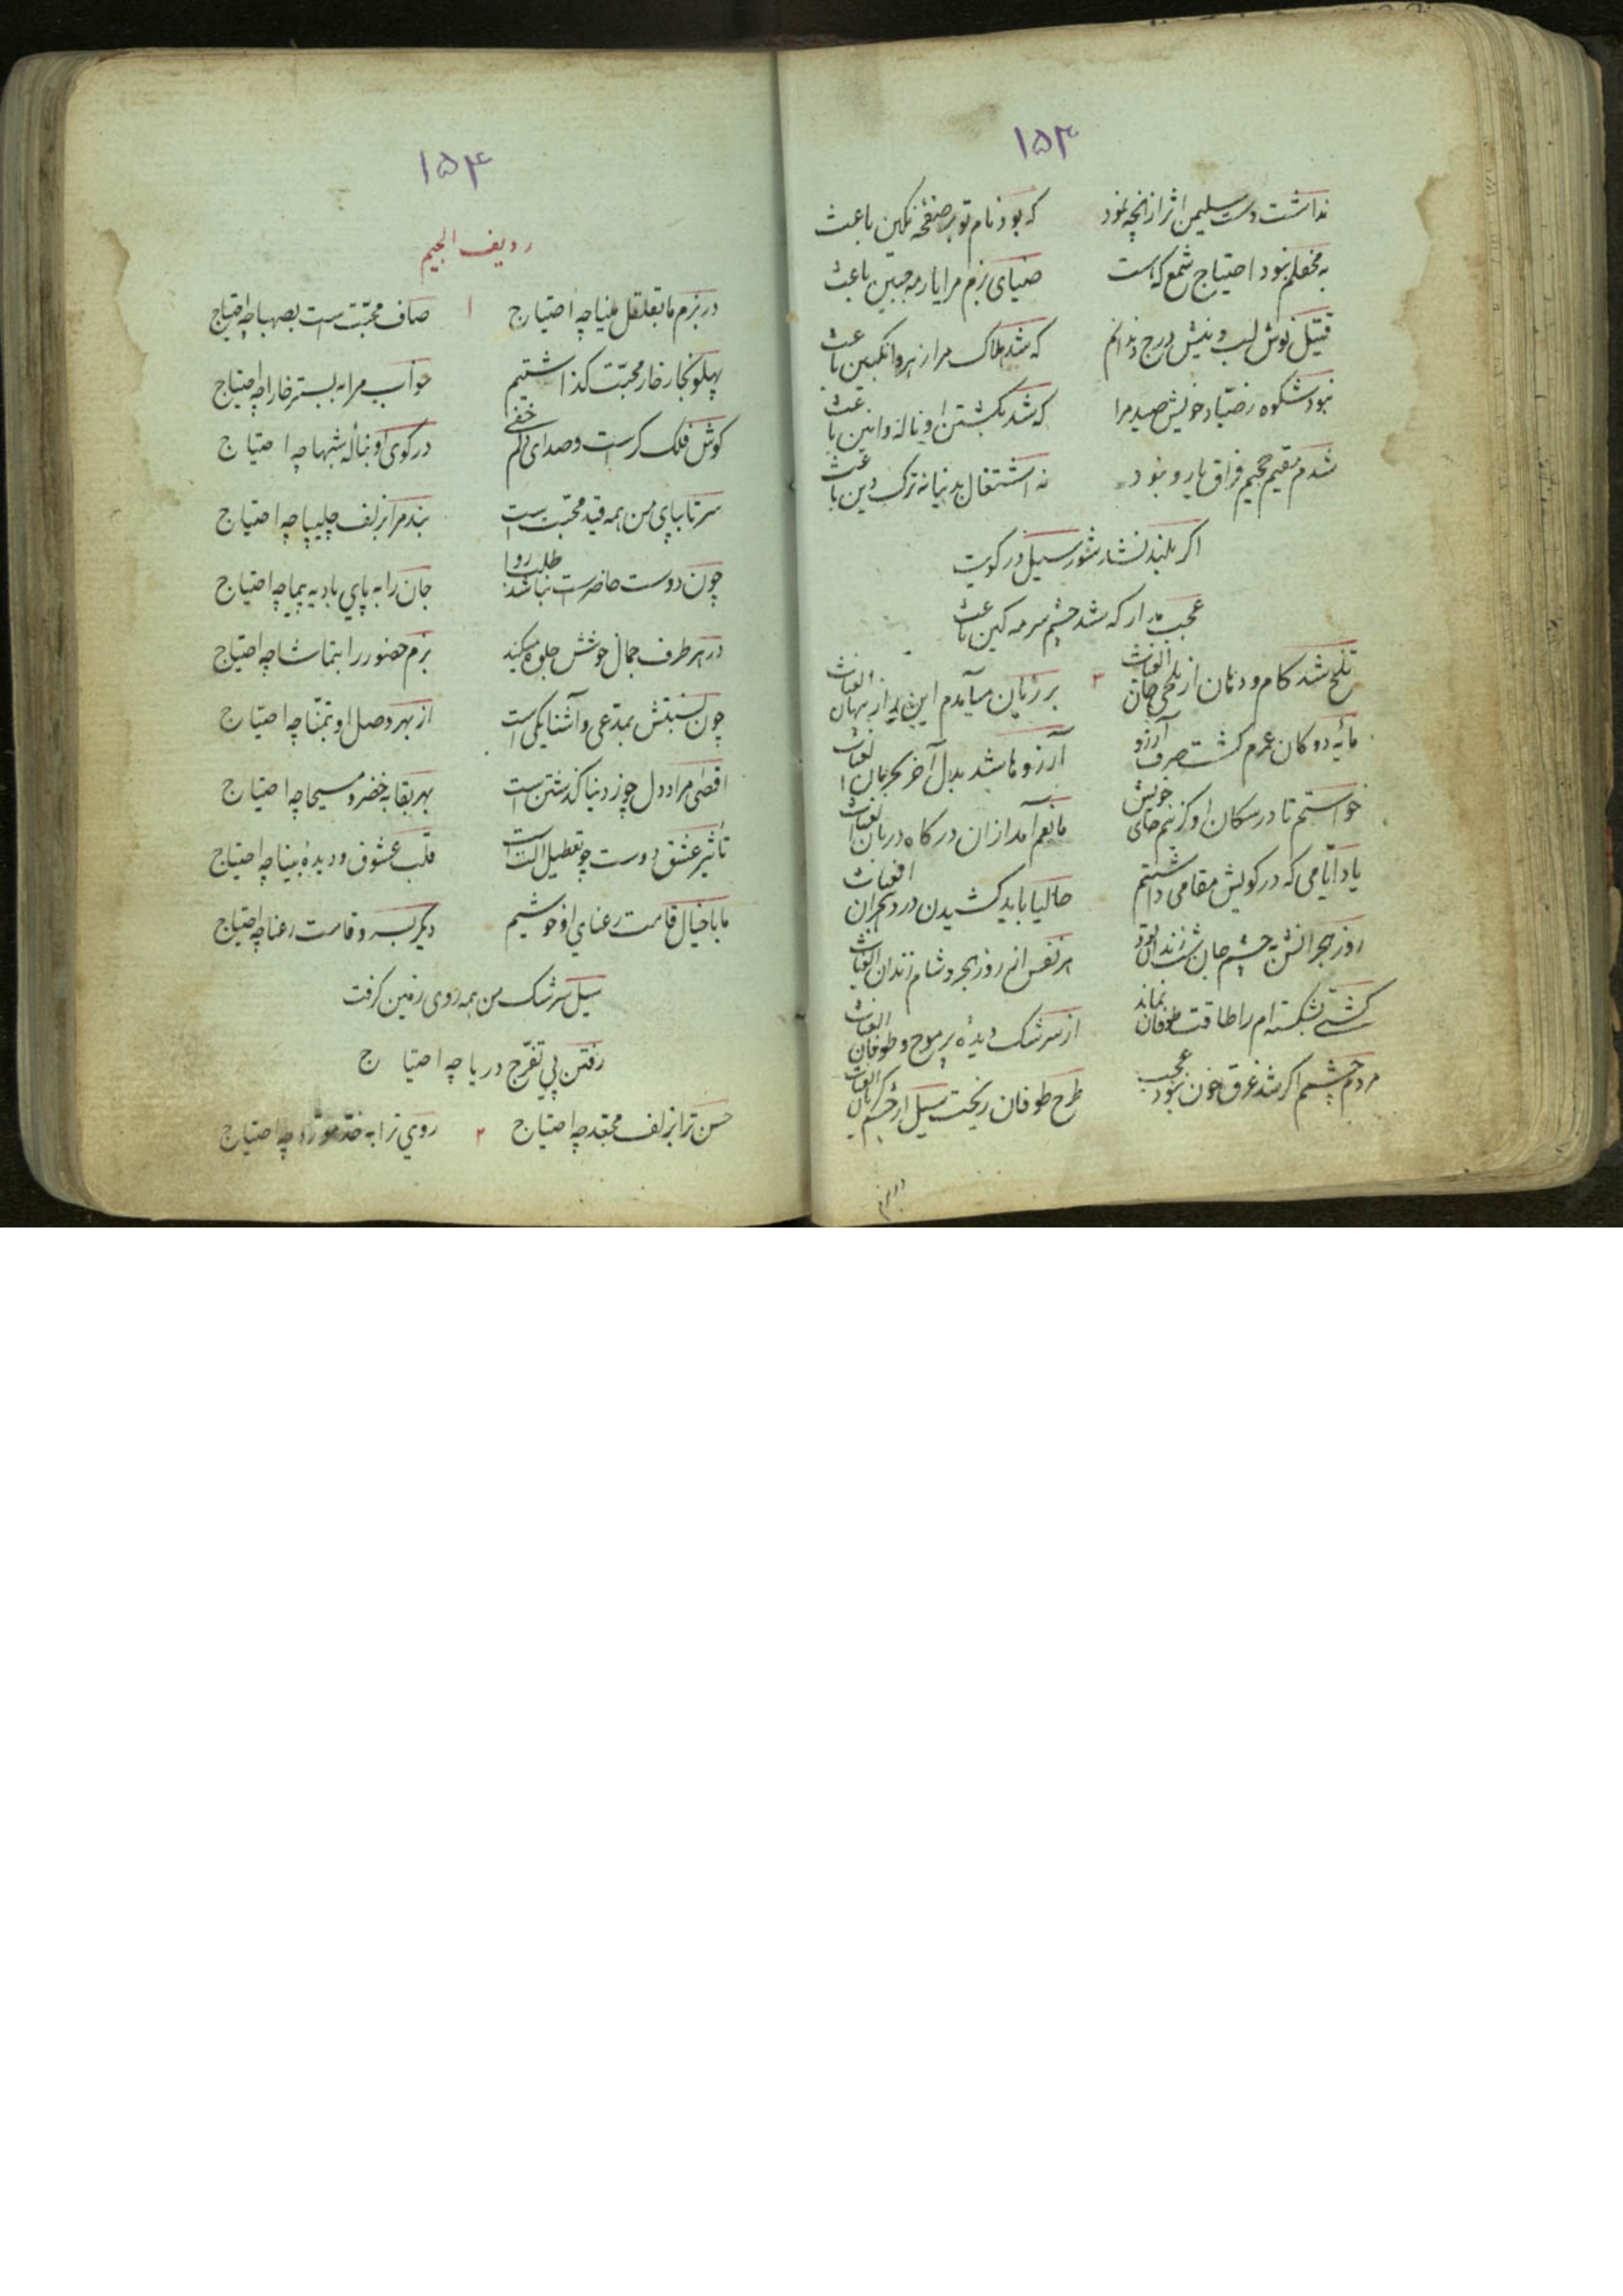 ۱۵۳
نداشت دست سلیمن اثر از انچه نمود که بود نام تو بر صفحه نکین باعث
به محفلم نبود احتیاج شمع که هست ضیای بزم مرا یار مه جبین باعث
قتیل نوش لب و نیش درج دندانم که شد هلاک مرا زهر و انکبین باعث
نبود شکوه ز صیاد خویش صید مرا که شد بکشتن او ناله و انین باعث
شدم مقیم جحیم فراق یار و نبود نه اشتغال بدنیا نه ترک دین باعث
اکر بلند نشد شور سیل در کویت
عجب مدار که شد چشم سرمه کین باعث
تلخ شد کام و دهان از تلخی جان الغیاث ۳ بر زبان میآیدم این راز پنهان الغیاث
مایه دوکان عمرم کشت صرف آرزو آرزوها شد بدل آخر بحرمان الغیاث
خواستم تا در سکان او کزینم جای خویش مانعم آمد از ان درکاه دربان الغیاث
یاد ایامی که در کویش مقامی داشتیم حالیا باید کشیدن درد هجران الغیاث
روز هجرانش به چشم جان شب زندان نمود هر نفس از روز هجر و شام زندان الغیاث
کشتی بشکسته ام را طاقت طوفان نماند از سرشک دیده پر موج و طوفان الغیاث
مردم چشمم اکر شد غرق خون نبود عجب طرح طوفان ریخت سیل از چشم کریان الغیاث
در بزم
۱۵۴
ردیف الجیم
در بزم ما بقلقل مینا چه احتیاج ۱ صاف محبت است بصهبا چه احتیاج
پهلو بخار خار محبت کذاشتیم خواب مرا به بستر خارا چه احتیاج
کوش فلک کرست و صدای دلم خفی در کوی او بنالهٔ شبها چه احتیاج
سر تا بپای من همه قید محبت است بند مرا بزلف چلیپا چه احتیاج
چون دوست حاضرست نباشد طلب روا جان را به پای بادیه پیما چه احتیاج
در هر طرف جمال خوشش جلوه میکند بزم حضور را بتماشا چه احتیاج
چون نسبتش بمدعی و آشنا یکی است از بهر وصل او بتمنا چه احتیاج
اقصی مراد دل چو ز دنیا کذشتن است بهر بقا به خضر و مسیحا چه احتیاج
تأثیر عشق دوست چو تعطیل آلت است قلب عشوق و دیدهٔ بینا چه احتیاج
ما با خیال قامت رعنای او خوشیم دیکر بسرو قامت رعنا چه احتیاج
سیل سرشک من همه روی زمین کرفت
رفتن پی تفرج دریا چه احتیاج
حسن ترا بزلف مجعد چه احتیاج ۲ روی ترا به خد مورد چه احتیاج